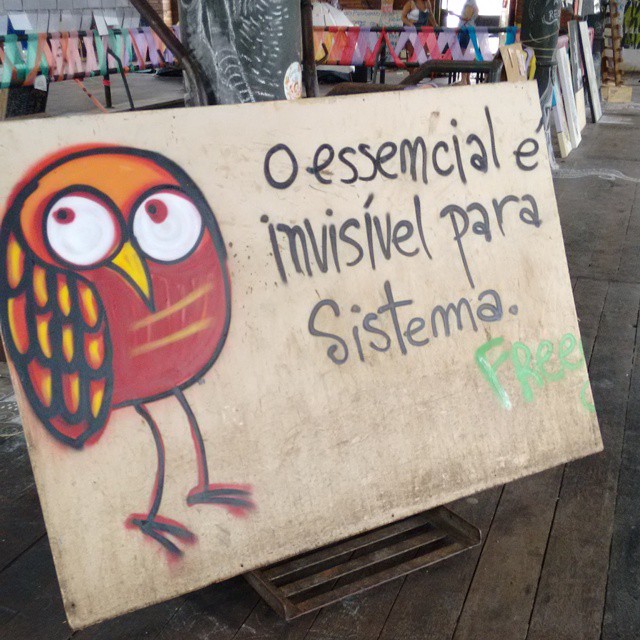 O essencial é
invisível para
Sistema.
FRee